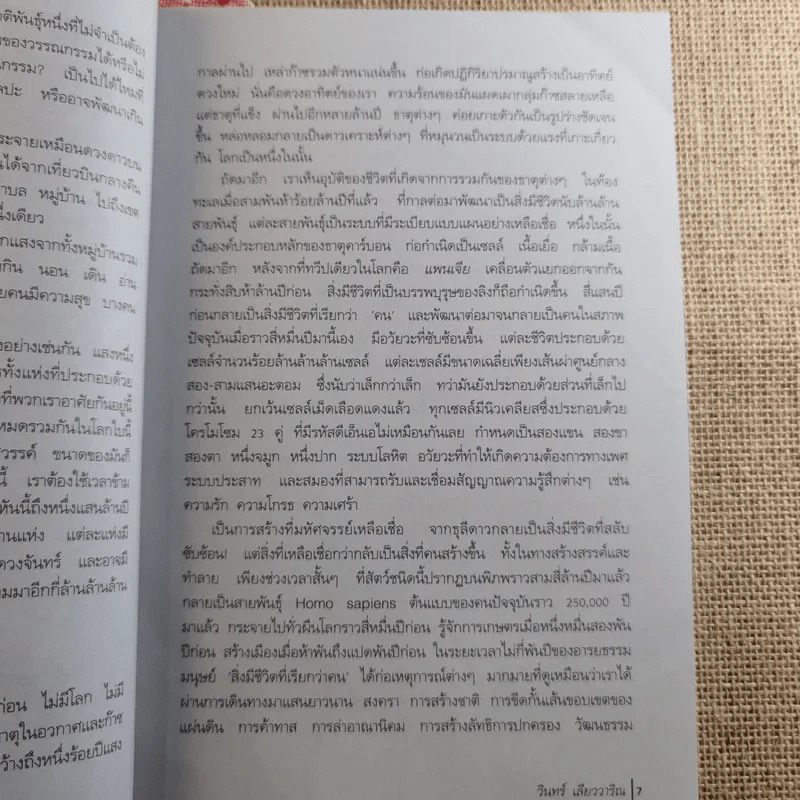 าติพันธุ์หนึ่งที่ไม่จำเป็นต้อง
ของวรรณกรรมได้หรือไม่
นกรรม? เป็นไปได้ไหมที่
ลปะ หรืออาจพัฒนาเกิน
ระจายเหมือนดวงดาวบน
นได้จากเที่ยวบินกลางคืน
ำบล หมู่บ้าน ไปถึงเขต
นึ่งเดียว
กแสงจากทั้งหมู่บ้านรวม
งกิน นอน เดิน อ่าน
ยคนมีความสุข บางคน
งอย่างเช่นกัน แสงหนึ่ง
รทั้งแห่งที่ประกอบด้วย
ที่พวกเราอาศัยกันอยู่นี้
หมดรวมกันในโลกใบนี้
สวรรค์ ขนาดของมันก็
นี้ เราต้องใช้เวลาข้าม
หันนี้ถึงหนึ่งแสนล้านปี
านแห่ง แต่ละแห่งมี
ดวงจันทร์ และอาจมี
วมมาอีกกี่ล้านล้านล้าน
ก่อน ไม่มีโลก ไม่มี
าตุในอวกาศและก๊าซ
ว้างถึงหนึ่งร้อยปีแสง
กาลผ่านไป เหล่าก๊าซรวมตัวหนาแน่นขึ้น ก่อเกิดปฏิกิริยาปรมาณูสร้างเป็นอาทิตย์
ดวงใหม่ นั่นคือดวงอาทิตย์ของเรา ความร้อนของมันแผดเผากลุ่มก๊าซสลายเหลือ
แต่ธาตุที่แข็ง ผ่านไปอีกหลายล้านปี ธาตุต่างๆ ค่อยเกาะตัวกันเป็นรูปร่างชัดเจน
ขึ้น หล่อหลอมกลายเป็นดาวเคราะห์ต่างๆ ที่หมุนวนเป็นระบบด้วยแรงที่เกาะเกี่ยว
กัน โลกเป็นหนึ่งในนั้น
ถัดมาอีก เราเห็นอุบัติของชีวิตที่เกิดจากการรวมกันของธาตุต่างๆ ในท้อง
ทะเลเมื่อสามพันห้าร้อยล้านปีที่แล้ว ที่กาลต่อมาพัฒนาเป็นสิ่งมีชีวิตนับล้านล้าน
สายพันธุ์ แต่ละสายพันธุ์เป็นระบบที่มีระเบียบแบบแผนอย่างเหลือเชื่อ หนึ่งในนั้น
เป็นองค์ประกอบหลักของธาตุคาร์บอน ก่อกำเนิดเป็นเซลล์ เนื้อเยื่อ กล้ามเนื้อ
ถัดมาอีก หลังจากที่ทวีปเดียวในโลกคือ แพนเจีย เคลื่อนตัวแยกออกจากกัน
กระทั่งสิบห้าล้านปีก่อน สิ่งมีชีวิตที่เป็นบรรพบุรุษของลิงก็ถือกำเนิดขึ้น สี่แสนปี
ก่อนกลายเป็นสิ่งมีชีวิตที่เรียกว่า 'คน' และพัฒนาต่อมาจนกลายเป็นคนในสภาพ
ปัจจุบันเมื่อราวสี่หมื่นปีมานี้เอง มีอวัยวะที่ซับซ้อนขึ้น แต่ละชีวิตประกอบด้วย
เซลล์จำนวนร้อยล้านล้านล้านเซลล์ แต่ละเซลล์มีขนาดเฉลี่ยเพียงเส้นผ่าศูนย์กลาง
สอง-สามแสนอะตอม ซึ่งนับว่าเล็กกว่าเล็ก ทว่ามันยังประกอบด้วยส่วนที่เล็กไป
กว่านั้น ยกเว้นเซลล์เม็ดเลือดแดงแล้ว ทุกเซลล์มีนิวเคลียสซึ่งประกอบด้วย
โครโมโซม 23 คู่ ที่มีรหัสดีเอ็นเอไม่เหมือนกันเลย กำหนดเป็นสองแขน สองขา
สองตา หนึ่งจมูก หนึ่งปาก ระบบโลหิต อวัยวะที่ทำให้เกิดความต้องการทางเพศ
ระบบประสาท และสมองที่สามารถรับและเชื่อมสัญญาณความรู้สึกต่างๆ เช่น
ความรัก ความโกรธ ความเศร้า
เป็นการสร้างที่มหัศจรรย์เหลือเชื่อ จากธุลีดาวกลายเป็นสิ่งมีชีวิตที่สลับ
ซับซ้อน! แต่สิ่งที่เหลือเชื่อกว่ากลับเป็นสิ่งที่คนสร้างขึ้น ทั้งในทางสร้างสรรค์และ
ทำลาย เพียงช่วงเวลาสั้นๆ ที่สัตว์ชนิดนี้ปรากฏบนพิภพราวสามสี่ล้านปีมาแล้ว
กลายเป็นสายพันธุ์ Homo sapiens ต้นแบบของคนปัจจุบันราว 250,000 ปี
มาแล้ว กระจายไปทั่วผืนโลกราวสี่หมื่นปีก่อน รู้จักการเกษตรเมื่อหนึ่งหมื่นสองพัน
ปีก่อน สร้างเมืองเมื่อห้าพันถึงแปดพันปีก่อน ในระยะเวลาไม่กี่พันปีของอารยธรรม
มนุษย์ 'สิ่งมีชีวิตที่เรียกว่าคน' ได้ก่อเหตุการณ์ต่างๆ มากมายที่ดูเหมือนว่าเราได้
ผ่านการเดินทางมาแสนยาวนาน สงครา การสร้างชาติ การขีดกั้นเส้นขอบเขตของ
แผ่นดิน การค้าทาส การล่าอาณานิคม การสร้างลัทธิการปกครอง วัฒนธรรม
วินทร์ เลียววาริณ 7